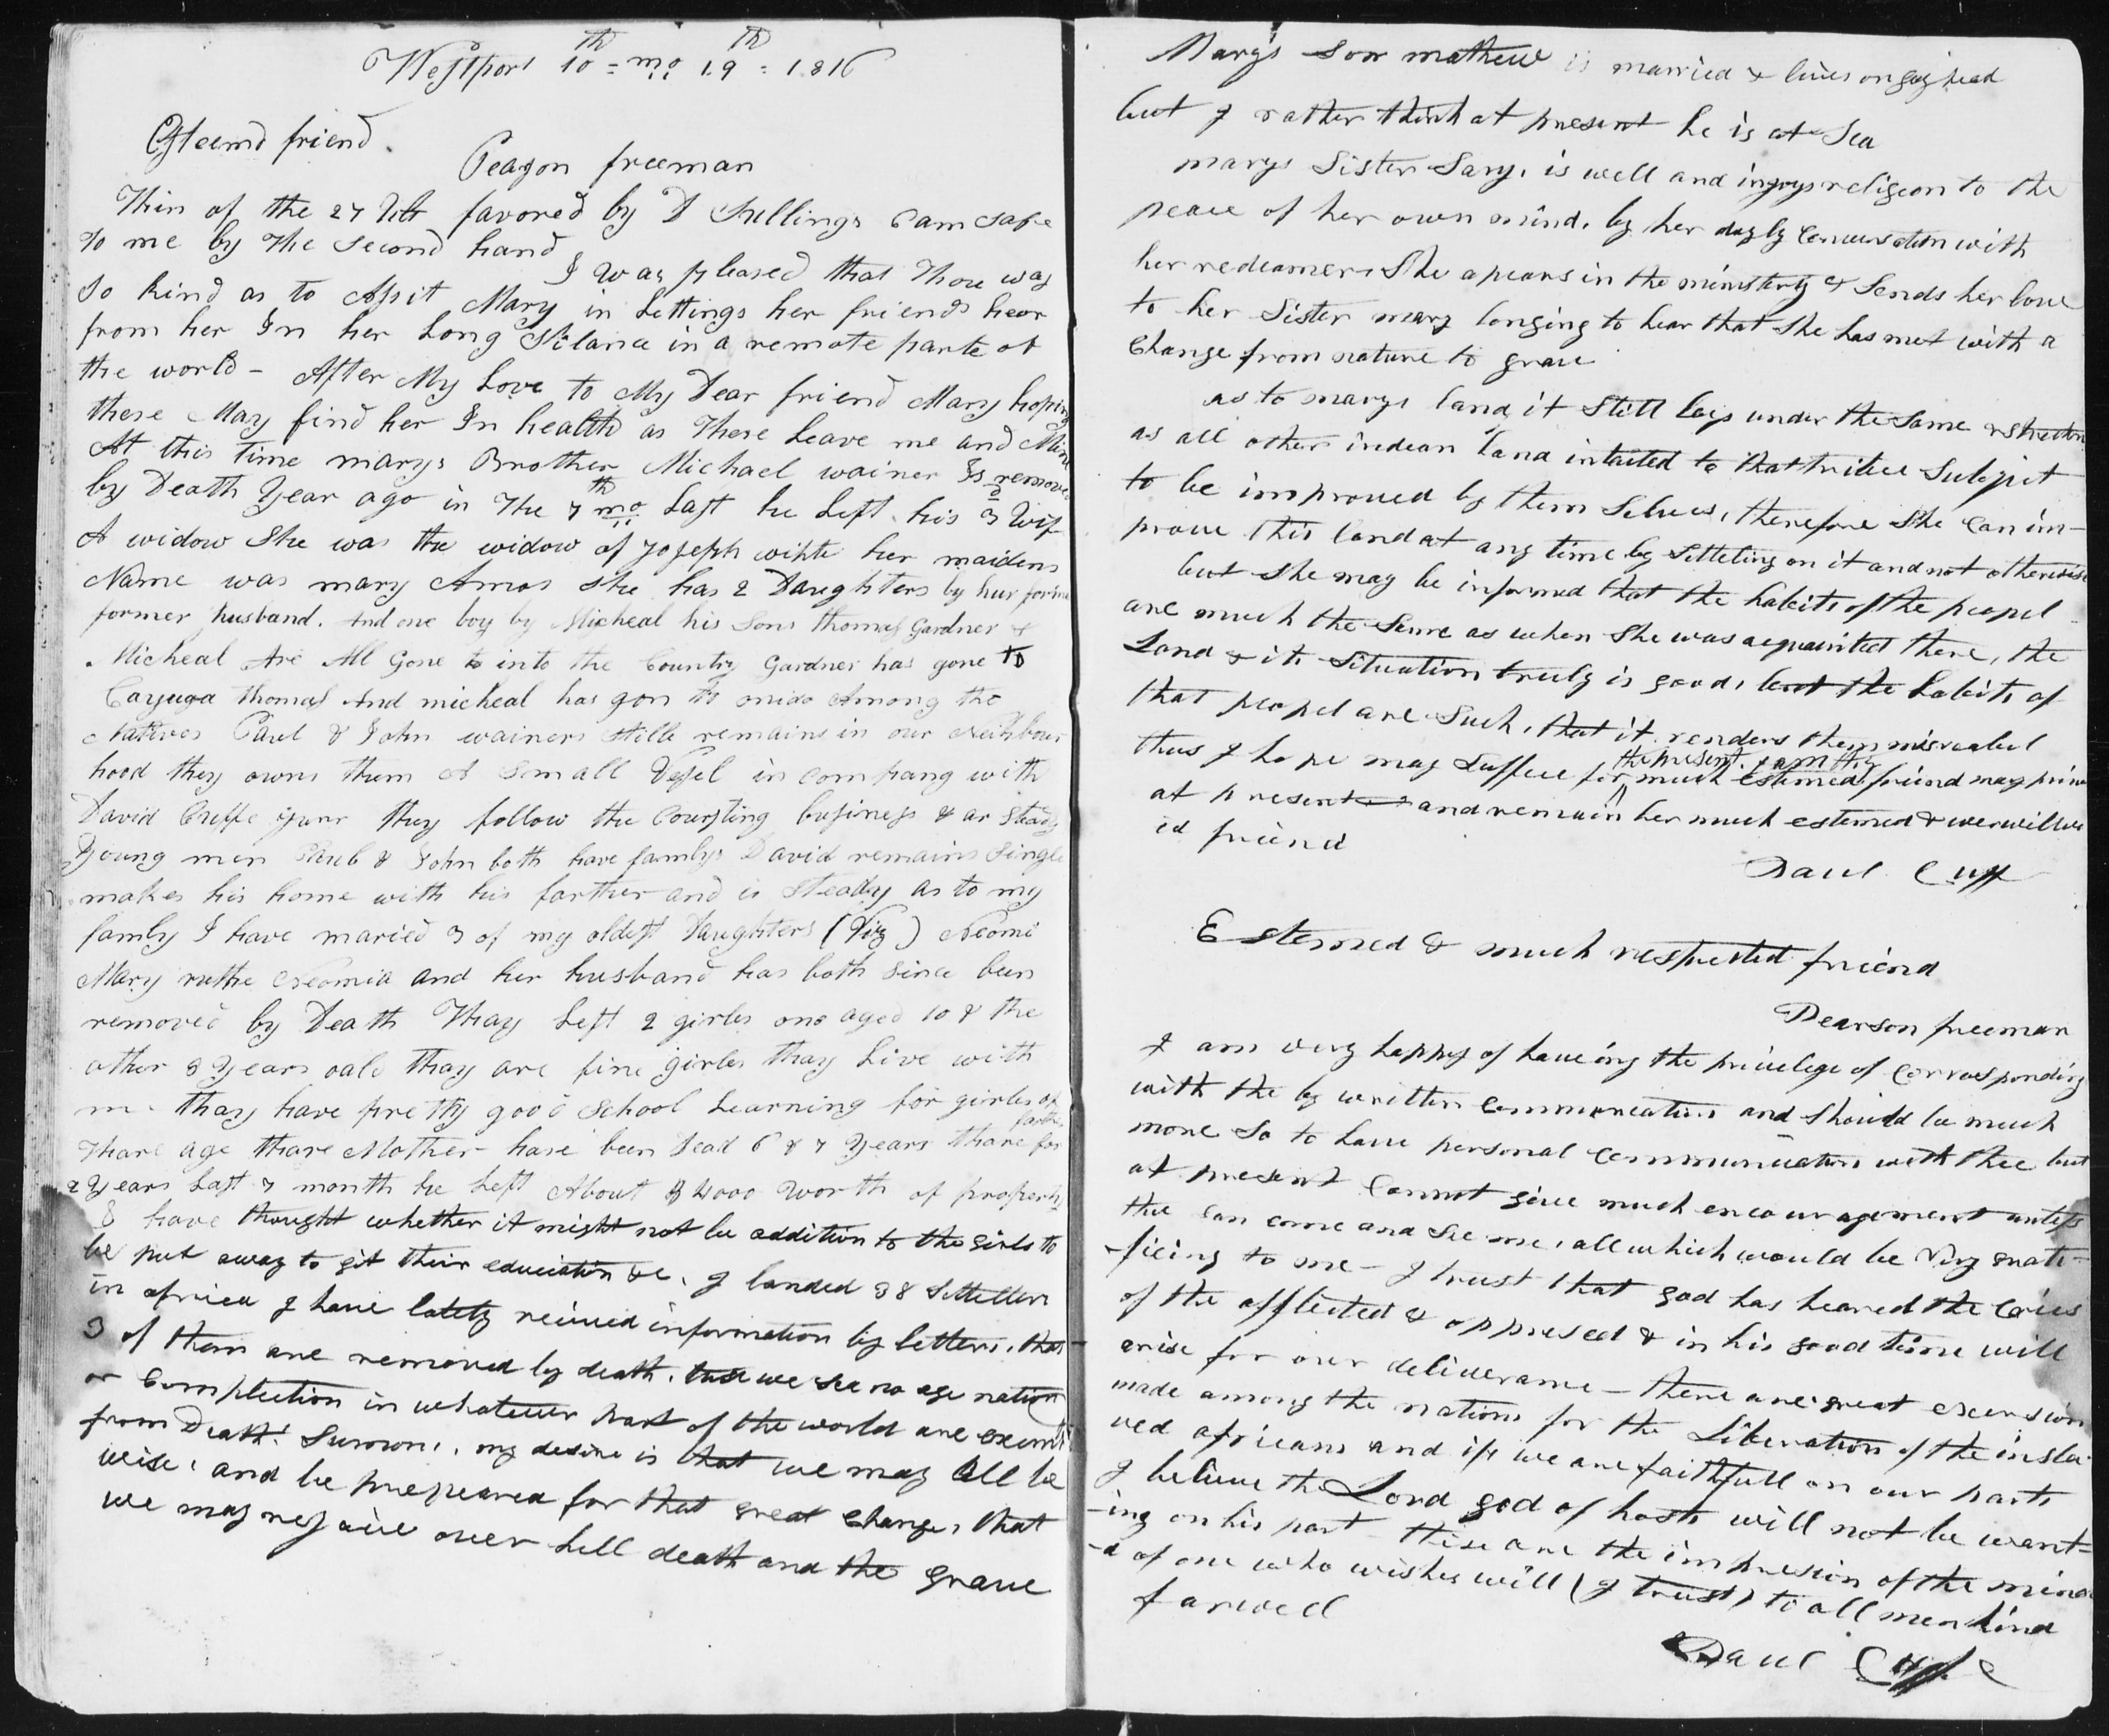 Westport 10th mo 19th 1816
Esteemd friend.
Peason freeman
Thin of the 27 Ult favored by D Sullings Cam safe
to me by the Second hand
I Was pleased that Thou was
So kind as to Assit Mary in Lettings her friends hear
from her In her Long Silance in a remote parte of
the world - After My Love to My Dear friend Mary hoping
these May find her In health as These Leave me and Mine
At this time marys Brother Michael wainer Is remove
by Death Year ago in The 7th mo Last he Left his 3d Wife
A widow She was the widow of Joseph white her maidens
Name was mary Amos She has 2 Daughters by hur
former husband. And one boy by Micheal his Sons thomas Gardner &
Micheal Are All Gone to into the Country Gardner has gone to
Cayuga thomas And micheal has gon to mixo Among the
Natives Paul & John wainers Stille remains in our Neithbour
hood they owns them A Small Vesel in Compang with
David Cuffe they follow the Coursting business & ar Steady
Young men Paul & John both have famlys David remains Single
makes his home with his farther and is Steadly as to my
famly I have maried 3 of my oldest Daughters (Viz) Neomi
Mary ruthe Neomia and her husband has both since been
removed by Death Thay Left 2 girles one aged 10 & the
other 8 Years oald thay are fine girles thay Live with
me thay have pretty good School Learning for girles of
Thare age thare Mother have been Dead 6 & 7 Years thare farther for
2 Years Last 7 month he Left About $4000 Worth of property
I have thought whether it might not be addition to the girls to
be put away to git their education &c, I landed 38 Settellers
in africa I have lately reicued information by letters, that
3 of them are removed by death. thus we see no age nation
or Complection in whatever part of the world are exempt
from Death Summons, my desire is that we may all be
wise, and be prepeared for that great Change, that
we may rejoice over hell death and the grave
Marys Son mathew is married & lives on gayhead
but I rather think at present he is at Sea
marys Sister Sary, is well and injoys religeon to the
peace of her own mind, by her dayly Conversation with
her redeamer, She apears in the ministery & Sends her love
to her Sister mary longing to hear that She has met with a
Change from nature to grace
as to marys land it Still lays under the Same restriction
as all other indean land intailed to that tribe Subject
to be improved by them Selves, therefore She Can im-
prove this land at any time by Setteling on it and not otherwise
but She may be informed that the habits of the peopel
are much the Same as when She was aequainted there, the
Land & its Situation truly is good, but the habits of
that peopel are Such, that it renders them misreabel
thus I hope may Suffice for the present I am thy much estemed friend may prince
at present and remain her much estemed & werwillwi
ed friend
Paul Cuff
Estemed & much respected friend
Pearson freeman
I am very happy of haveing the privelege of Corresponding
with the by written Communication and Should be much
more So to have personal Communication with thee but
at present Cannot give much encouragement unless
thee Can come and See me, all which would be Very grati-
fieing to me - I trust that god has heared the Cries
of the afflicted & oppresed & in his good time will
arise for our deliverance - there are great exersion
made among the nations for the Liberation of the insla-
ved africans and if we are faithfull on our parts
I believe the Lord god of hosts will not be want=
-ing on his part - these are the impresion of the mind
-d of one who wishes will (I trust) to all men kind
farwell
Paul Cuffe